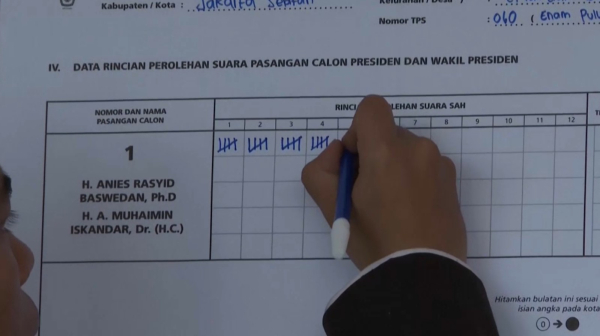 Kabupaten / Kota : Jakarta Selatan
Nomor TPS : 060 ( Enam Pulu
IV. DATA RINCIAN PEROLEHAN SUARA PASANGAN CALON PRESIDEN DAN WAKIL PRESIDEN
NOMOR DAN NAMA
PASANGAN CALON
SUARA SAH
1 2 3 4 7 8 9 10 11 12
1
H. ANIES RASYID
BASWEDAN, Ph.D
H. A. MUHAIMIN
ISKANDAR, Dr. (H.C.)
Hitamkan bulatan ini sesuai
isian angka pada kota
0